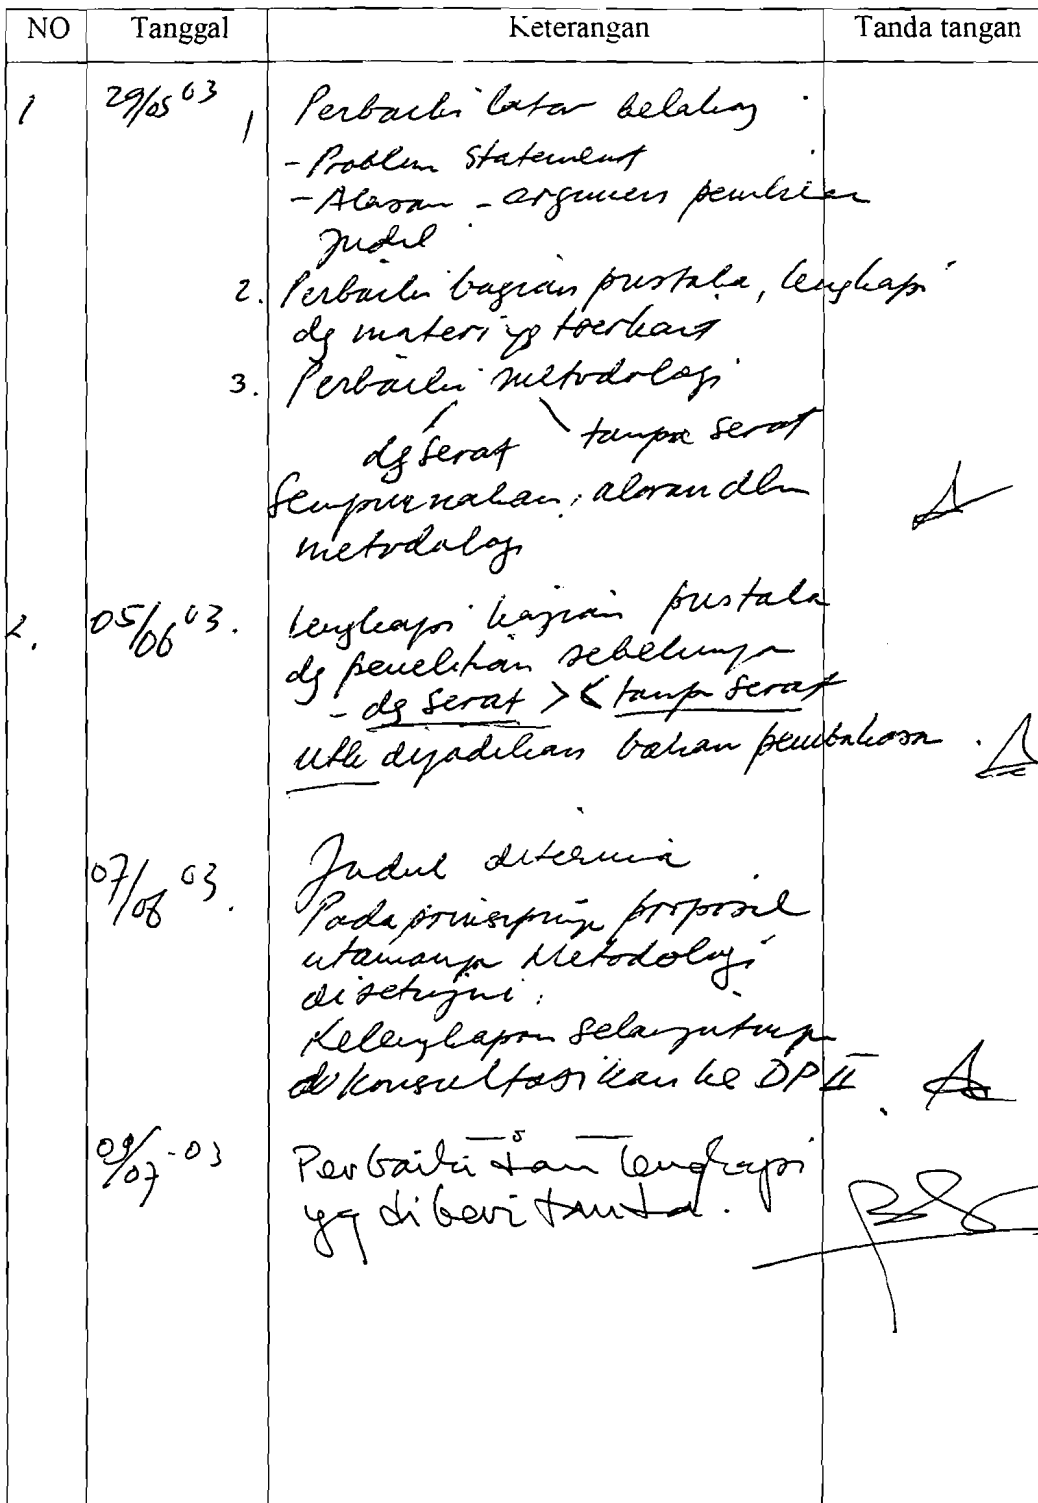 NO Tanggal Keterangan Tanda tangan
1 29/05 03 1, Perbaiki latar belakang
- Problem Statement
- Alasan - argumen pemilihan
Judul
2. Perbaiki bagian pustaka, lengkapi
dg materi yg terkait
3. Perbaiki metodologi
dg serat tanpa serat
Sempurnakan, aloran dlm
metodologi
2. 05/06 03. lengkapi kajian pustaka
dg penelitian sebelumnya
- dg serat >< tanpa serat
utk dijadikan bahan pembahasan.
07/06 03. Judul diterima
Pada prinsipnya proposal
utamanya Metodologi
disetujui.
Kelengkapan selanjutnya
dikonsultasikan ke DP II.
09/07-03 Perbaiki dan lengkapi
yg diberi tanda.